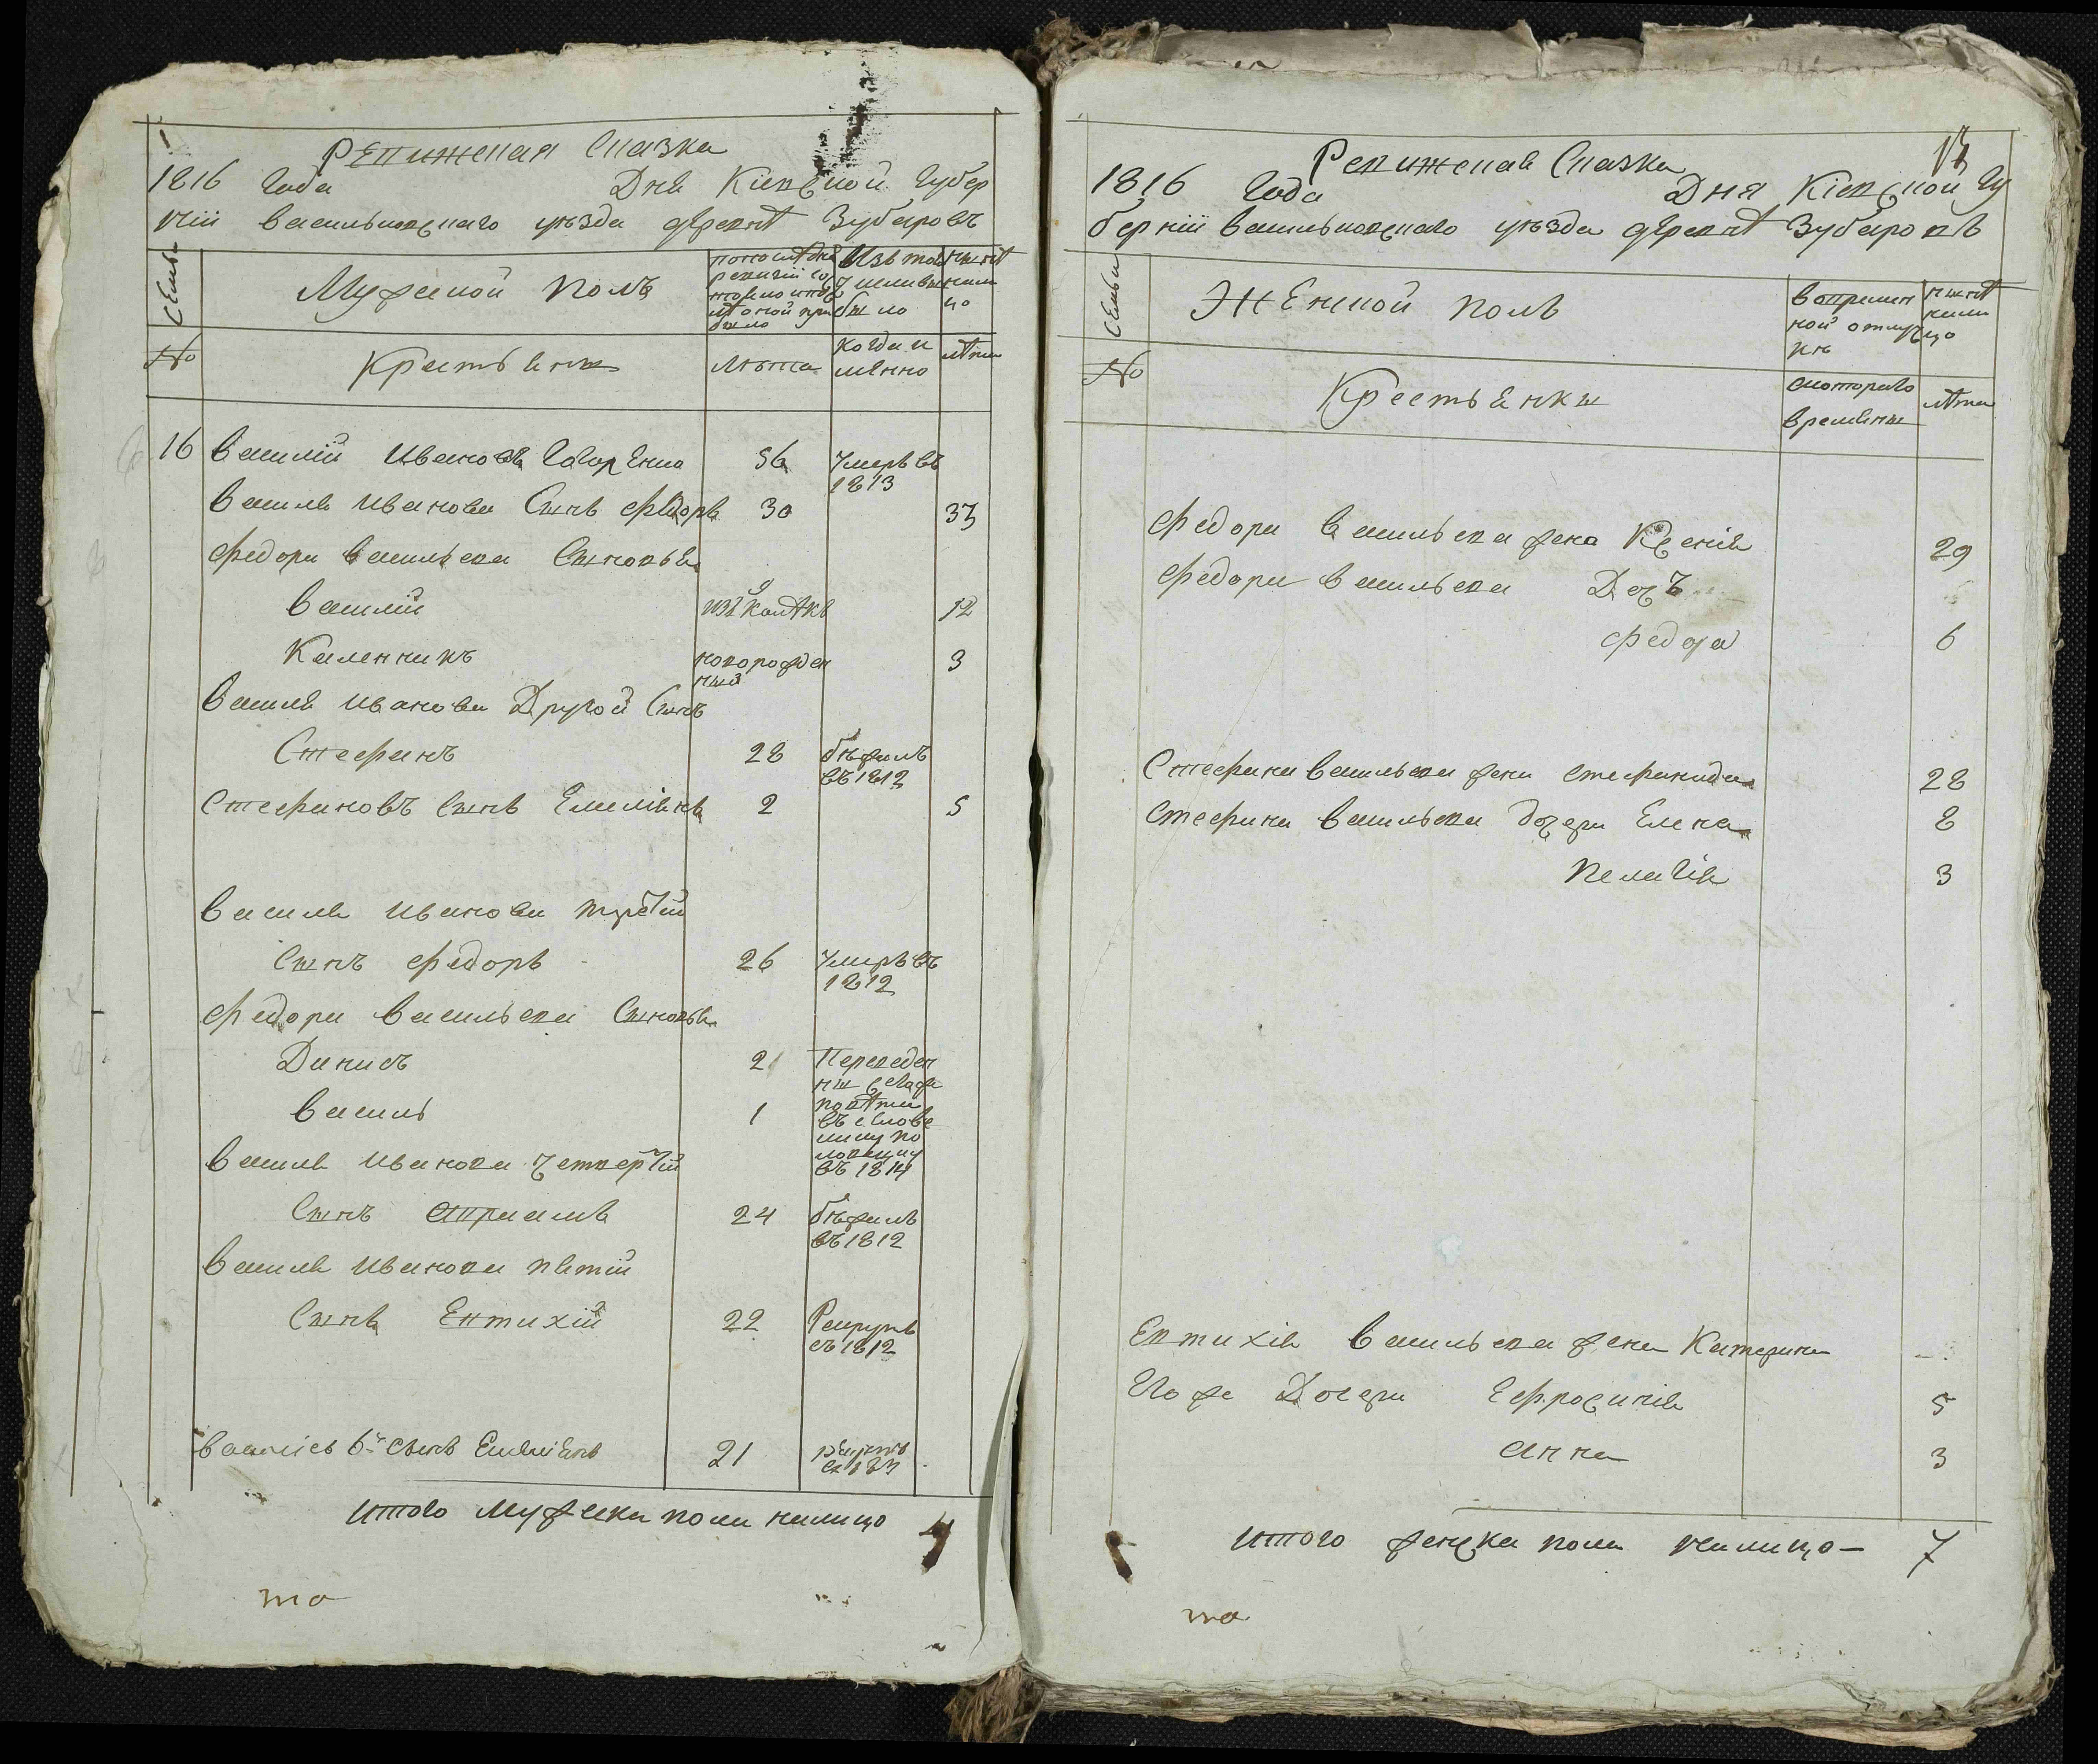 Ревижская Сказка
1816 Года Дня Кіевской Губер
ніи васильковскаго уѣзда деревнѣ Зубаровъ
Семьи
Мужеской полъ
Изъ того
числа вы
было
нынѣ
нали
цо
№
Крестьяны
лѣта
когда и
мянно
лѣта
16 василій Ивановъ 56 Умеръ въ
1813
василя иванова Сынъ федоръ 30 33
федора васильева Сыновья
василій 12
Каленникъ новорожден
ный 3
василя иванова Другой Сынъ
Стефанъ 28 бѣжалъ
въ 1812
Стефановъ Сынъ Емеліянъ 2 5
василя иванова третій
Сынъ федоръ 26 Умеръ въ
1812
федора васильева Сыновья
Данисъ 2 Переведен
ны
василь 1
василя иванова четвертій
въ 1814
Сынъ 24 бѣжалъ
въ 1812
василя иванова пятій
Сынъ Евтихій 22 Рекрутъ
въ 1812
6й сынъ Емеліянъ 21
итого мужеска пола налицо 4
то
17
Ревижская Сказка
1816 Года Дня Кіевской Гу
берніи васильковскаго уѣзда деревнѣ Зубаровъ
Семьи
Женской полъ
во времен
ной отлуч
кѣ
нынѣ
нали
цо
№
Крестьянки
скоторого
времены
лѣта
федора васильева жена Ксенія 29
федора васильева Дочъ
федора 6
Стефана васильева жена Стефанида 28
Стефана васильева дочери Елена 8
Пелагія 3
Евтихія васильева жена Катерина
Его же Дочери Ефросинія 5
анна 3
итого женска пола налицо 7
то